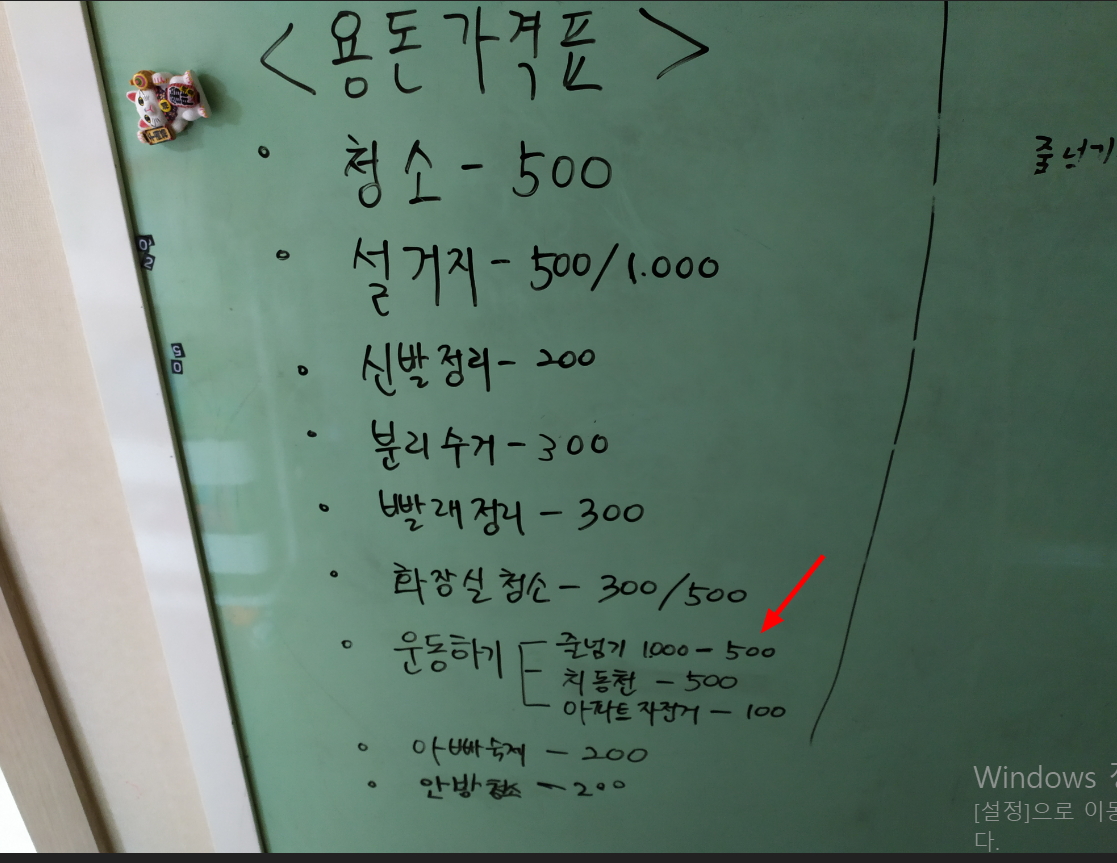 <용돈가격표>
• 청소 - 500
• 설거지 - 500/1.000
• 신발정리 - 200
• 분리수거 - 300
• 빨래정리 - 300
• 화장실 청소 - 300/500
• 운동하기 줄넘기 1.000 - 500
치동천 - 500
아파트 자전거 - 100
• 아빠숙제 - 200
• 안방청소 - 200
줄넘기
50
Windows
[설정]으로 이동
다.